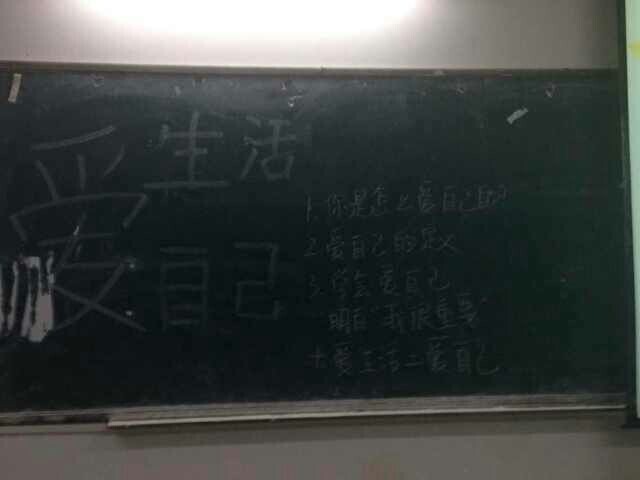 爱
生活
自己
1. 你是怎么爱自己的?
2. 爱自己的定义
3. 学会爱自己
明白“我很重要”
爱生活=爱自己